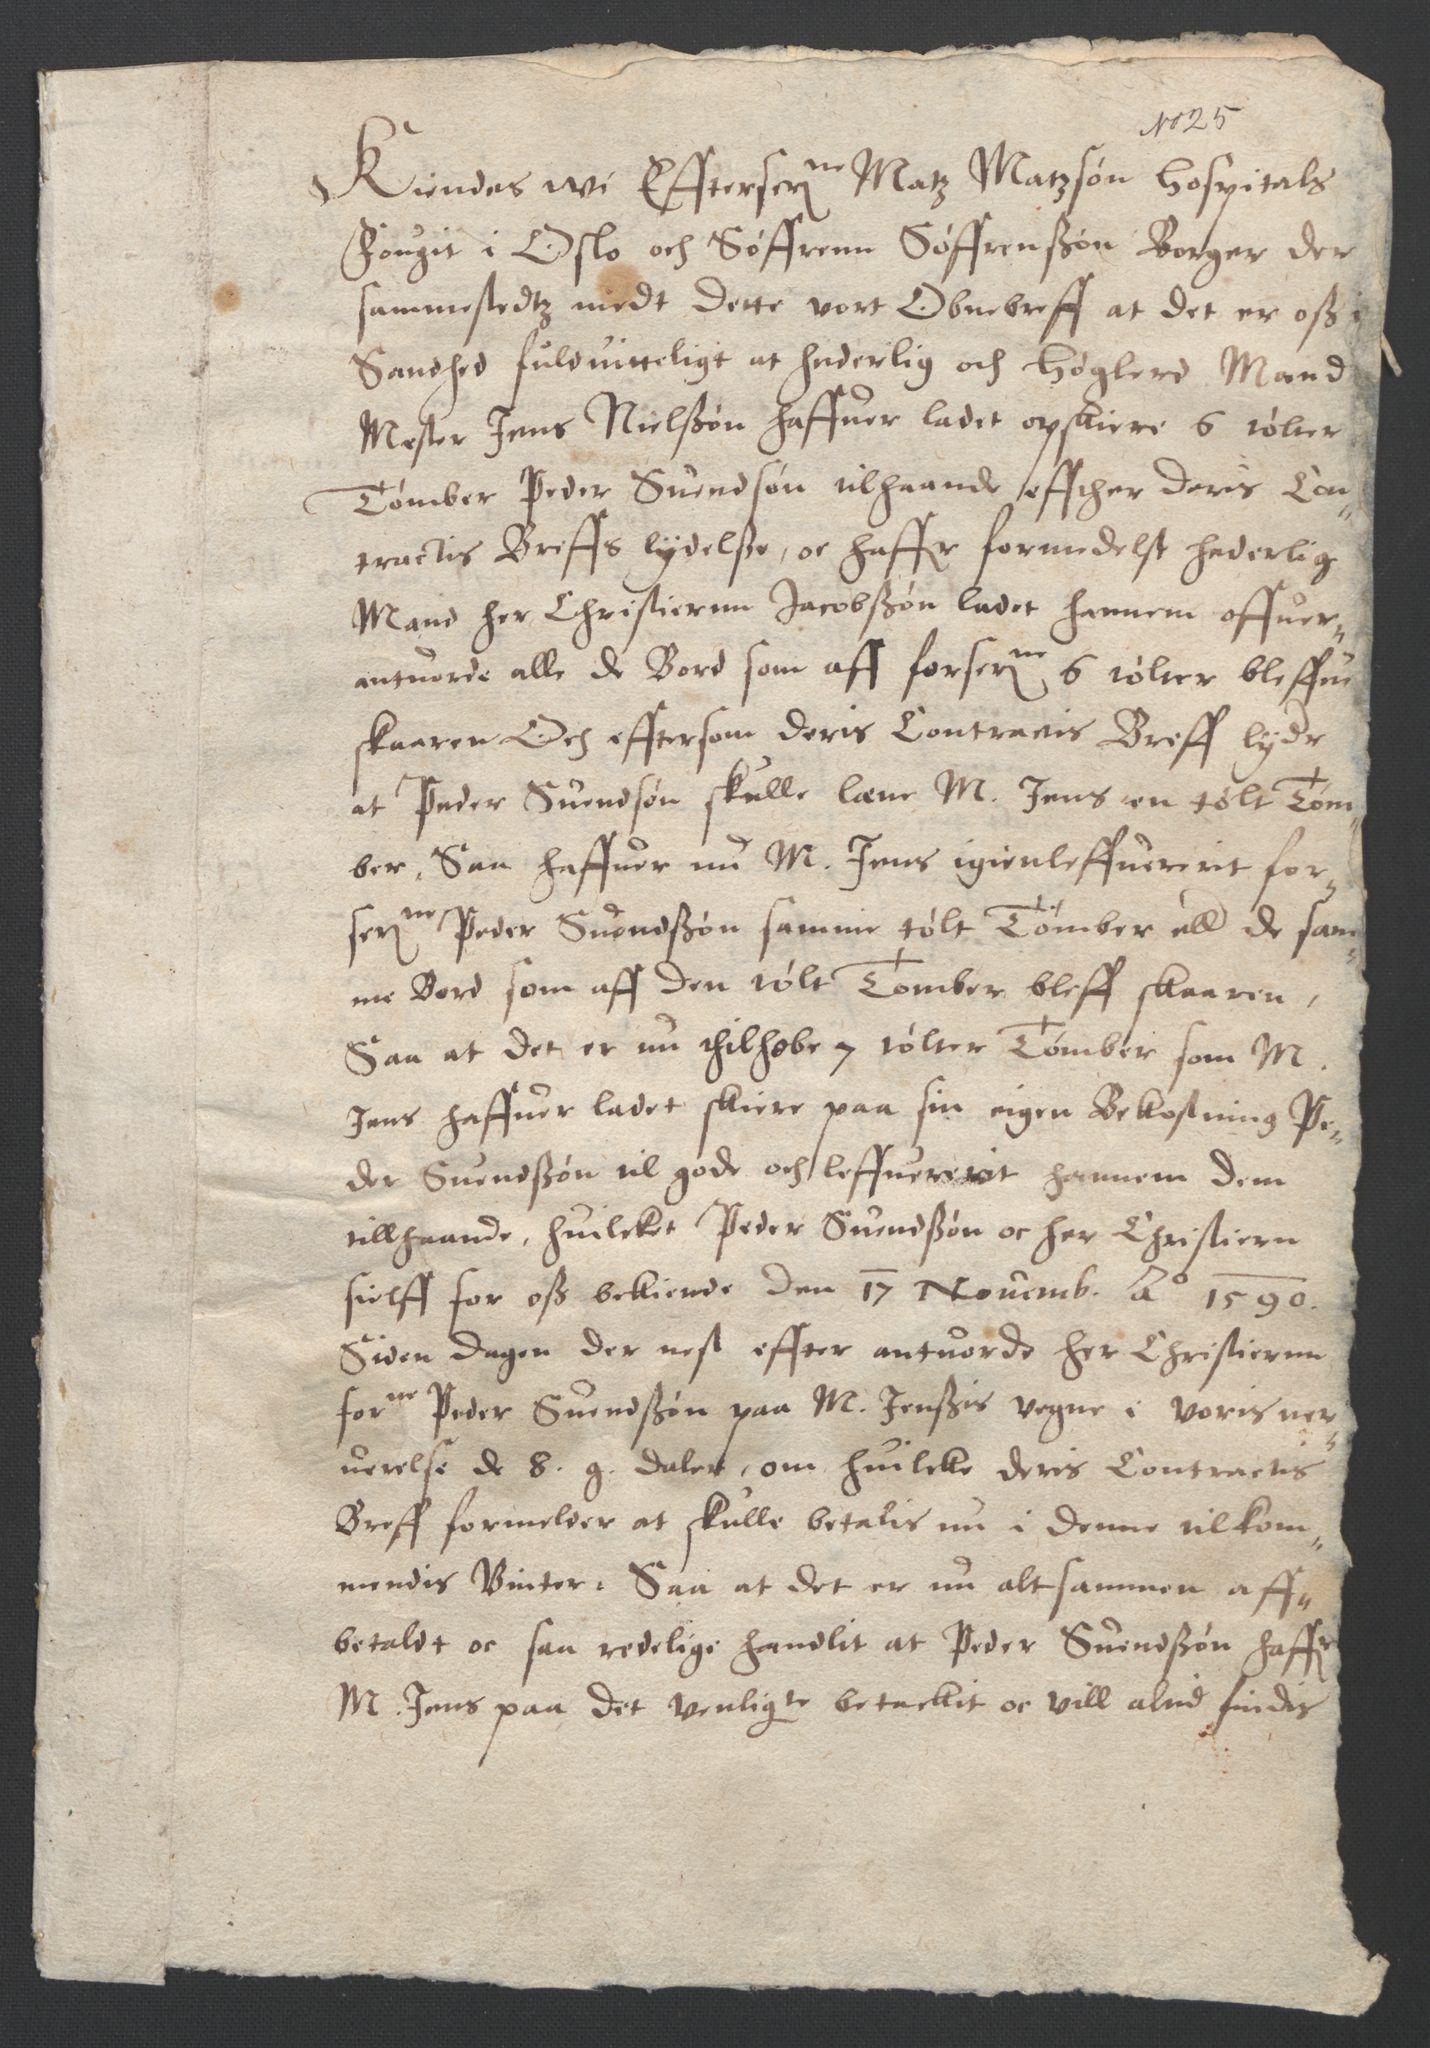 No 25
Kiendes wi Effterscr͞ne Matz Matzsøn Hospitals
Fougit i Oslo och Søffrenn Søffrensßøn Borger der
sammestedtz medt dette vort Obnebreff at det er oss i
Sandhed fuldvitteligt at hederlig och Høglerd Mand
Mester Jens Nielßøn haffuer ladet opskiere 6 tølter
Tømber Peder Suendsøn tilhaande effther deris Con„
tractis Breffs lydelße, oc haffr formedelst hederlig
Mand her Christiernn Jacobßøn ladet hannem offuer„
antuorde alle de Bord som aff forscr͞ne 6 tølter bleffue
skaaren Och efftersom deris Contractis Breff lydr
at Peder Suendsøn skulle læne M. Jens en tølt Tøm
ber, Saa haffuer nu M. Jens igienleffuererit for„
scr͞ne Peder Suendßøn samme tølt Tømber ell de sam„
me Bord som aff den tølt Tømber bleff skaaren,
Saa at det er nu thilhobe 7 tølter Tømber som M.
Jens haffuer ladet skiere paa sin eigen Bekostning Pe„
der Suendßøn til gode och leffuererit hannem dem
tillhaande, huilcket Peder Suendßøn oc her Christiern
sielff for oss bekiende den 17 Nouemb. Ao 1590.
Siden dagen der nest effter antuorde her Christiernn
forne Peder Suendßøn paa M. Jenßis vegne i voris ner„
uerelse de 8. g. daler, om huilcke deris Contractis
Breff formelder at skulle betalis nu i denne tilkom„
mendis Vinter: Saa at det er nu altsammen aff„
betaldt oc saa redelige handlit at Peder Suendßøn haffr
M. Jens paa det venligte betackit oc vill altid findis